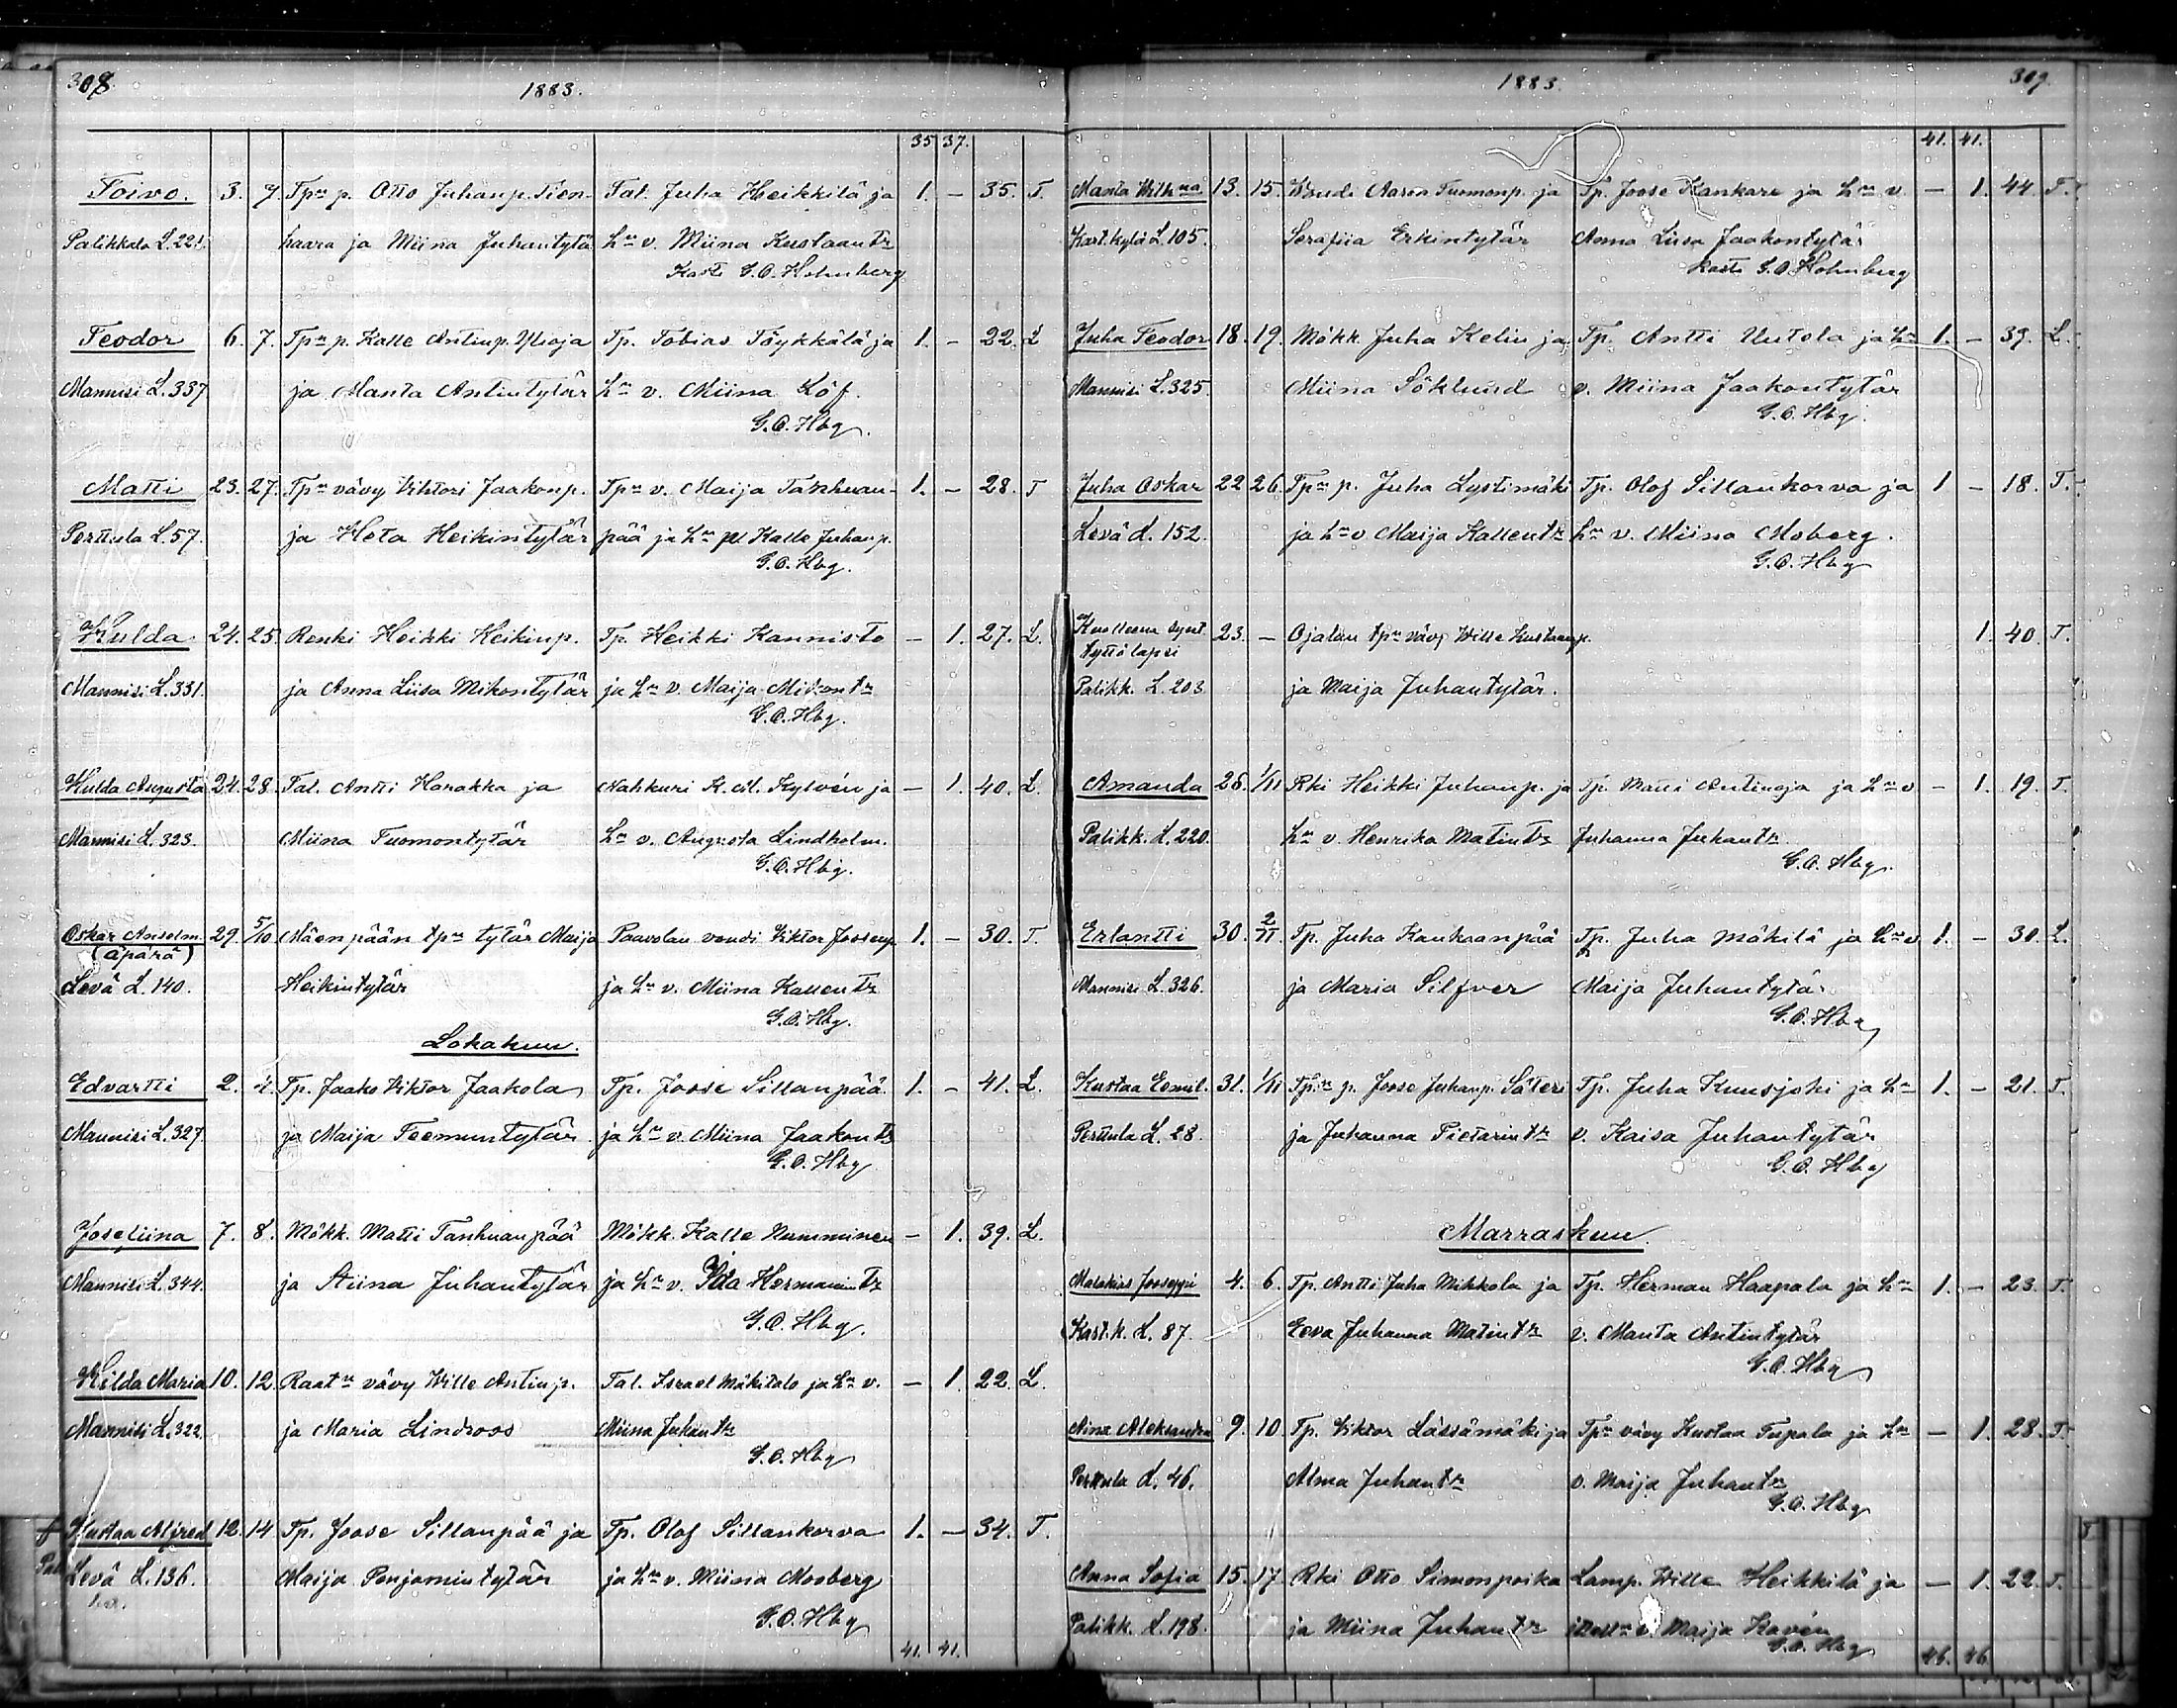 308. 1883.
35. 37.
Toivo. 3. 7. Tpn p. Otto Juhanp. Tien- Tal. Juha Heikkilä ja 1. — 35. T.
Palikkala L. 221. haara ja Miina Juhantytä Hn v. Miina Kustaantr
Kasti G. O. Holmberg
Feodor 6. 7. Tpn p. Kalle Antinp. Ylioja Tp. Tobias Töykkälä ja 1. — 22. L
Mannisi L. 337 ja Manta Antintytär Hn v. Miina Köf.
G. O. Hbg.
Matti 23. 27. Tpn vävy Vihtori Jaakonp. Tpn v. Maija Tanhuan- 1. — 28. T
Perttula L. 57. ja Heta Heikintytär pää ja Hn p. Kalle Juhanp.
G. O. Hbg.
Hulda 24. 25. Renki Heikki Heikinp. Tp. Heikki Kannisto — 1. 27. L.
Mannisi L. 331. ja Anna Liisa Mikontytär ja Hn v. Maija Mikontr
G. O. Hbg.
Hulda Augusta 24. 28. Tal. Antti Harakka ja Nahkuri K. A. Kylvén ja — 1. 40. L.
Mannisi L. 323. Miina Tuomontytär Hn v. Augusta Lindholm.
G. O. Hbg.
Oskar Anselm 29. 5/10 Mäenpään tpn tytär Maija Paavolan voudi Viktor Joosenp. 1. — 30. T.
(äpärä)
Levä L. 140. Heikintytär ja Hn v. Miina Kallentr
G. O. Hbg.
Lokakuu.
Edvartti 2. 4. Tp. Jaako Viktor Jaakola Tp. Joose Sillanpää 1. — 41. L.
Mannisi L. 327. ja Maija Teemuntytär ja Hn v. Miina Jaakontr
G. O. Hbg
Joseliina 7. 8. Mökk. Matti Tanhuanpää Mökk. Kalle Numminen — 1. 39. L.
Mannisi L. 344. ja Stiina Juhantytär ja Hn v. Ida Hermannintr
G. O. Hbg.
Hilda Maria 10. 12. Raatn vävy Wille Antinp. Tal. Israel Mäkitalo ja Hn v. — 1. 22. L.
Mannisi L. 322. ja Maria Lindroos Miina Juhantr
G. O. Hbg
Kustaa Alfred 12. 14 Tp. Joose Sillanpää ja Tp. Olof Sillankorva 1. — 34. T.
Levä L. 136. Maija Penjamintytär ja Hn v. Miina Moberg
G. O. Hbg
41. 41.
1883. 309.
41. 41.
Manta Wilhna 13. 15. Voudi Aaron Tuomonp. ja Tp. Joose Kankare ja Hn v. — 1. 44. T.
Kart. kylä L. 105. Serafiia Erkintytär Anna Liisa Jaakontytär
Kasti G. O. Holmberg
Juha Feodor 18. 19. Mökk. Juha Kelin ja Tp. Antti Uutola ja Hn 1. — 39. L.
Mannisi L. 325. Miina Söklund v. Miina Jaakontytär
G. O. Hbg.
Juha Oskar 22 26. Tpn p. Juha Lystimäki Tp. Olof Sillankorva ja 1 — 18. T.
Levä L. 152. ja Hn v Maija Kallentr Hn v. Miina Moberg.
G. O. Hbg
Kuolleena synt. 23. — Ojalan tpn vävy Wille Kustaanp. 1. 40. T.
tyttölapsi
Palikk. L. 203. ja Maija Juhantytär.
Amanda 26. 1/11 Rki Heikki Juhanp. ja Tp. Matti Antinoja ja Hn v — 1. 19. T.
Palikk. L. 220. Hn v. Henrika Matintr Juhanna Juhantr
G. O. Hbg.
Erlantti 30. 2/11. Tp. Juha Kaukaanpää Tp. Juha Mäkilä ja Hn v 1. — 30. L.
Mannisi L. 326. ja Maria Silfver Maija Juhantytär
G. O. Hbg
Kustaa Eemil. 31. 1/11 Tpn p. Joose Juhanp. Säteri Tp. Juha Kuusjoki ja Hn 1. — 21. T.
Perttula L. 28. ja Juhanna Pietarintr v. Kaisa Juhantytär
G. O. Hbg
Marraskuu.
Malakias Jooseppi 4. 6. Tp. Antti Juha Mikkola ja Tp. Herman Haapala ja Hn 1. — 23. T.
Kart. k. L. 87. Eeva Juhanna Matintr v. Manta Antintytär
G. O. Hbg
Aina Aleksandra 9. 10 Tp. Viktor Lässämäki ja Tpn vävy Kustaa Tupala ja Hn — 1. 28. T.
Perttula L. 46. Alma Juhantr v. Maija Juhantr
G. O. Hbg
Anna Sofia 15. 17. Rki Otto Simonpoika Lamp. Wille Heikkilä ja — 1. 22. T.
Palikk. L. 198. ja Miina Juhantr v. Maija Kavén
G. O. Hbg
46. 46